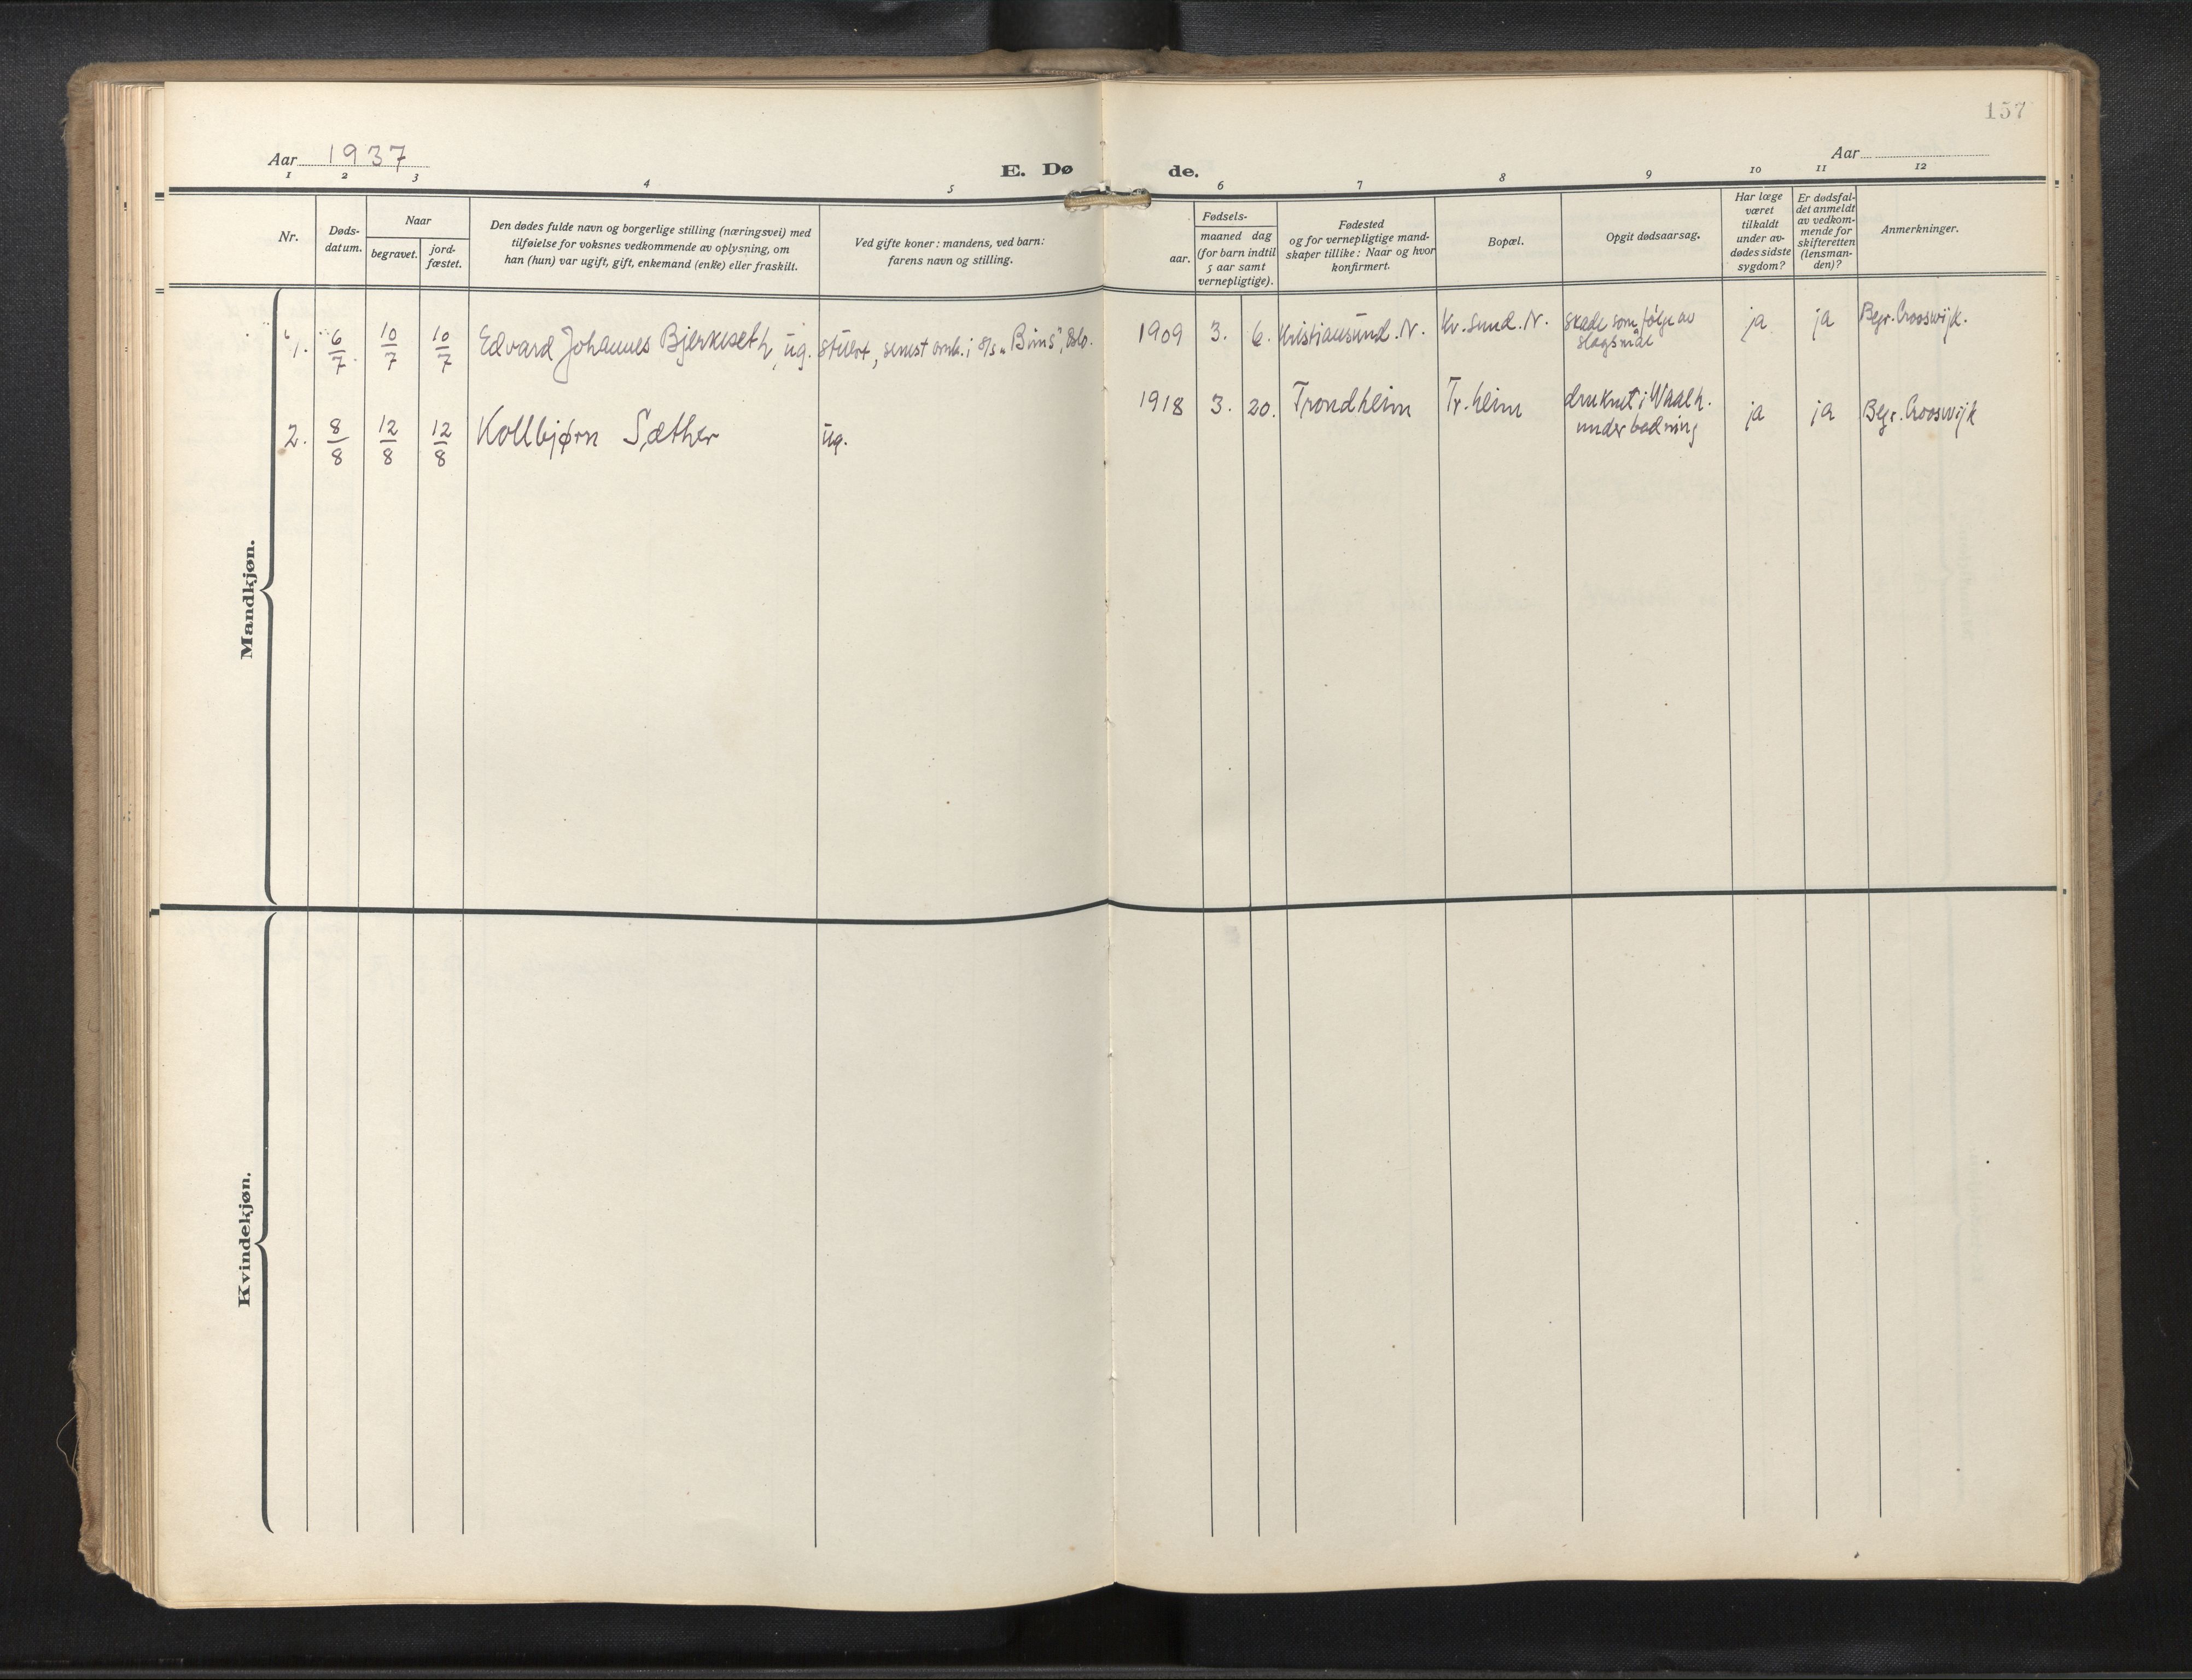 157
Aar 1937
E. Døde.
Aar
1 2 3 4 5 6 7 8 9 10 11 12
Nr.
Døds-
datum.
Naar
begravet.
jord-
fæstet.
Den dødes fulde navn og borgerlige stilling (næringsvei) med
tilføielse for voksnes vedkommende av oplysning, om
han (hun) var ugift, gift, enkemand (enke) eller fraskilt.
Ved gifte koner: mandens, ved barn:
farens navn og stilling.
Fødsels-
aar.
maaned dag
(for barn indtil
5 aar samt
vernepligtige).
Fødested
og for vernepligtige mand-
skaper tillike: Naar og hvor
konfirmert.
Bopæl.
Opgit dødsaarsag.
Har læge
været
tilkaldt
under av-
dødes sidste
sygdom?
Er dødsfal-
det anmeldt
av vedkom-
mende for
skifteretten
(lensman-
den)?
Anmerkninger.
Mandkjøn.
1. 6/7 10/7 10/7 Edvard Johannes Bjerkeseth, ug. stuert, senest omb. i S/s "Bims", Oslo. 1909 3. 6. Kristiansund. N. Kr. Sund. N. skade som følge av
slagsmål
ja ja Begr. Crooswijk.
2. 8/8 12/8 12/8 Kollbjørn Sæther ug. 1918 3. 20. Trondheim Tr. heim druknet i Waalh.
under badning
ja ja Begr. Crooswijk
Kvindekjøn.